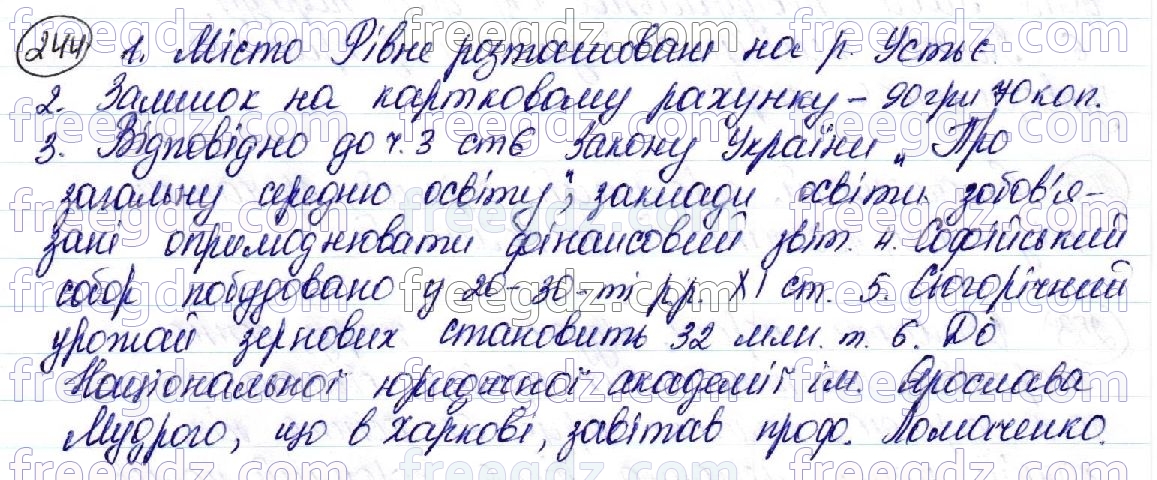 244 1. Місто Рівне розташовані на р. Устьє.
2. Залишок на картковому рахунку – 90 грн 70 коп.
3. Відповідно до ч. 3 ст 6 Закону України „Про
загальну середню освіту", заклади освіти зобов'я-
зані оприлюднювати фінансовий звіт. 4. Софійський
собор побудовано у 20-30-ті р.р. XI ст. 5. Сьогорічний
урожай зернових становить 32 млн. т. 6. До
Національної юридичної академії ім. Ярослава
Мудрого, що в Харкові, завітав проф. Ломаченко.
freegdz.com